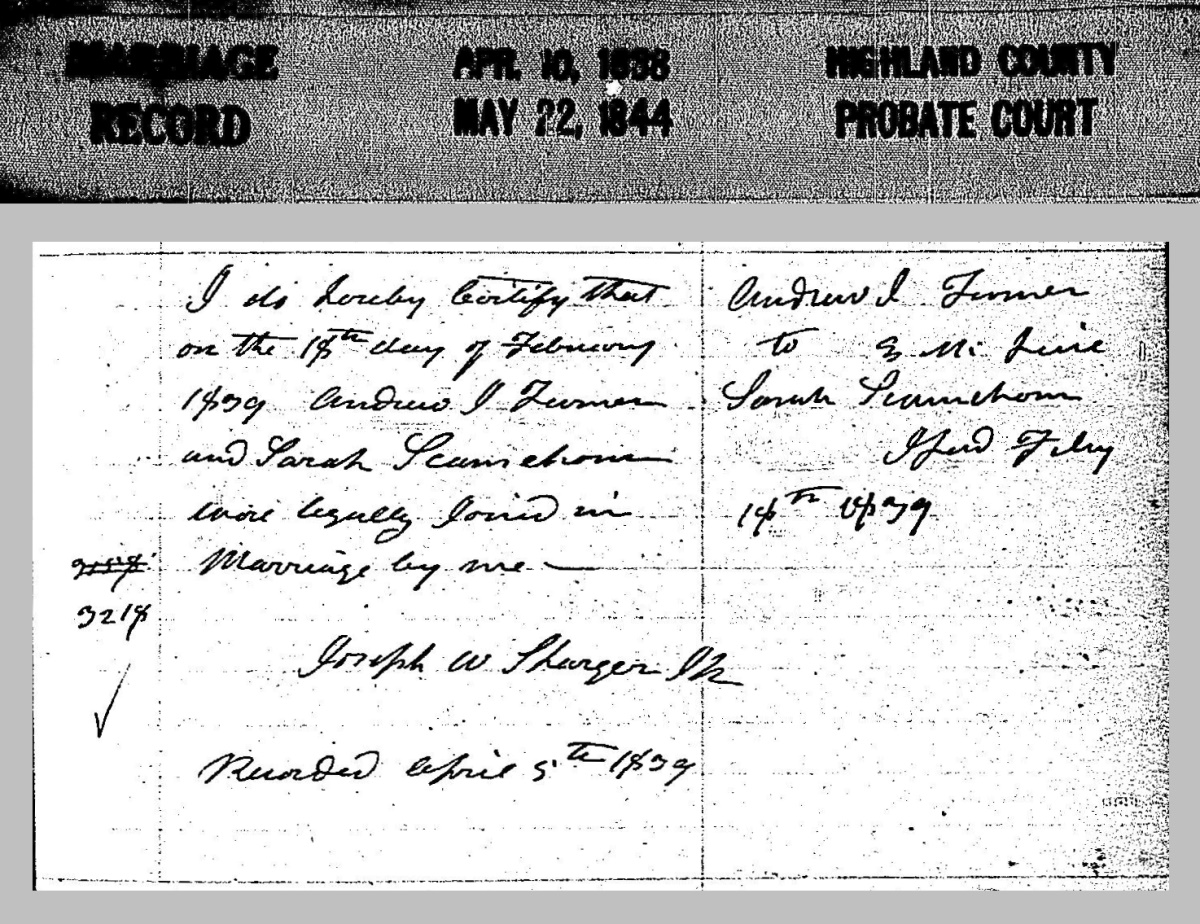 MARRIAGE RECORD
APR. 10, 1838
MAY 22, 1844
HIGHLAND COUNTY
PROBATE COURT
I do hereby Certify that
on the 18th day of February
1839 Andrew J Turner
and Sarah Scamehorn
were legally Joind in
Marriage by me
3218
Joseph W Shurger
Recorded April 5th 1839
Andrew J Turner
to
Sarah Scamehorn
Isud Feby
18th 1839